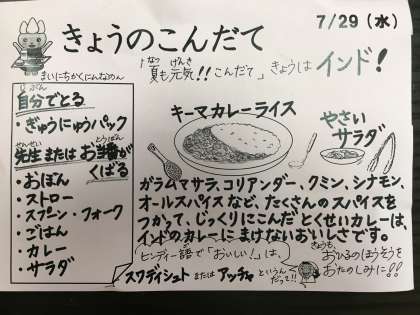 きょうのこんだて
7/29(水)
「夏も元気!!こんだて」きょうは インド!
なつ げんき
まいにちかくにんなのね
じぶん
自分でとる
・ぎゅうにゅうパック
せんせい とうばん
先生またはお当番が
くばる
・おぼん
・ストロー
・スプーン・フォーク
・ごはん
・カレー
・サラダ
キーマカレーライス
やさい
サラダ
ガラムマサラ、コリアンダー、クミン、シナモン、
オールスパイスなど、たくさんのスパイスを
つかって、じっくりにこんだとくせいカレーは、
インドのカレーにまけないおいしさです。
ヒンディー語で「おいしい!」は、
スワディシュト または アッチャ というん
だって!!
きょうも、
おひるのほうそうを
おたのしみに!!